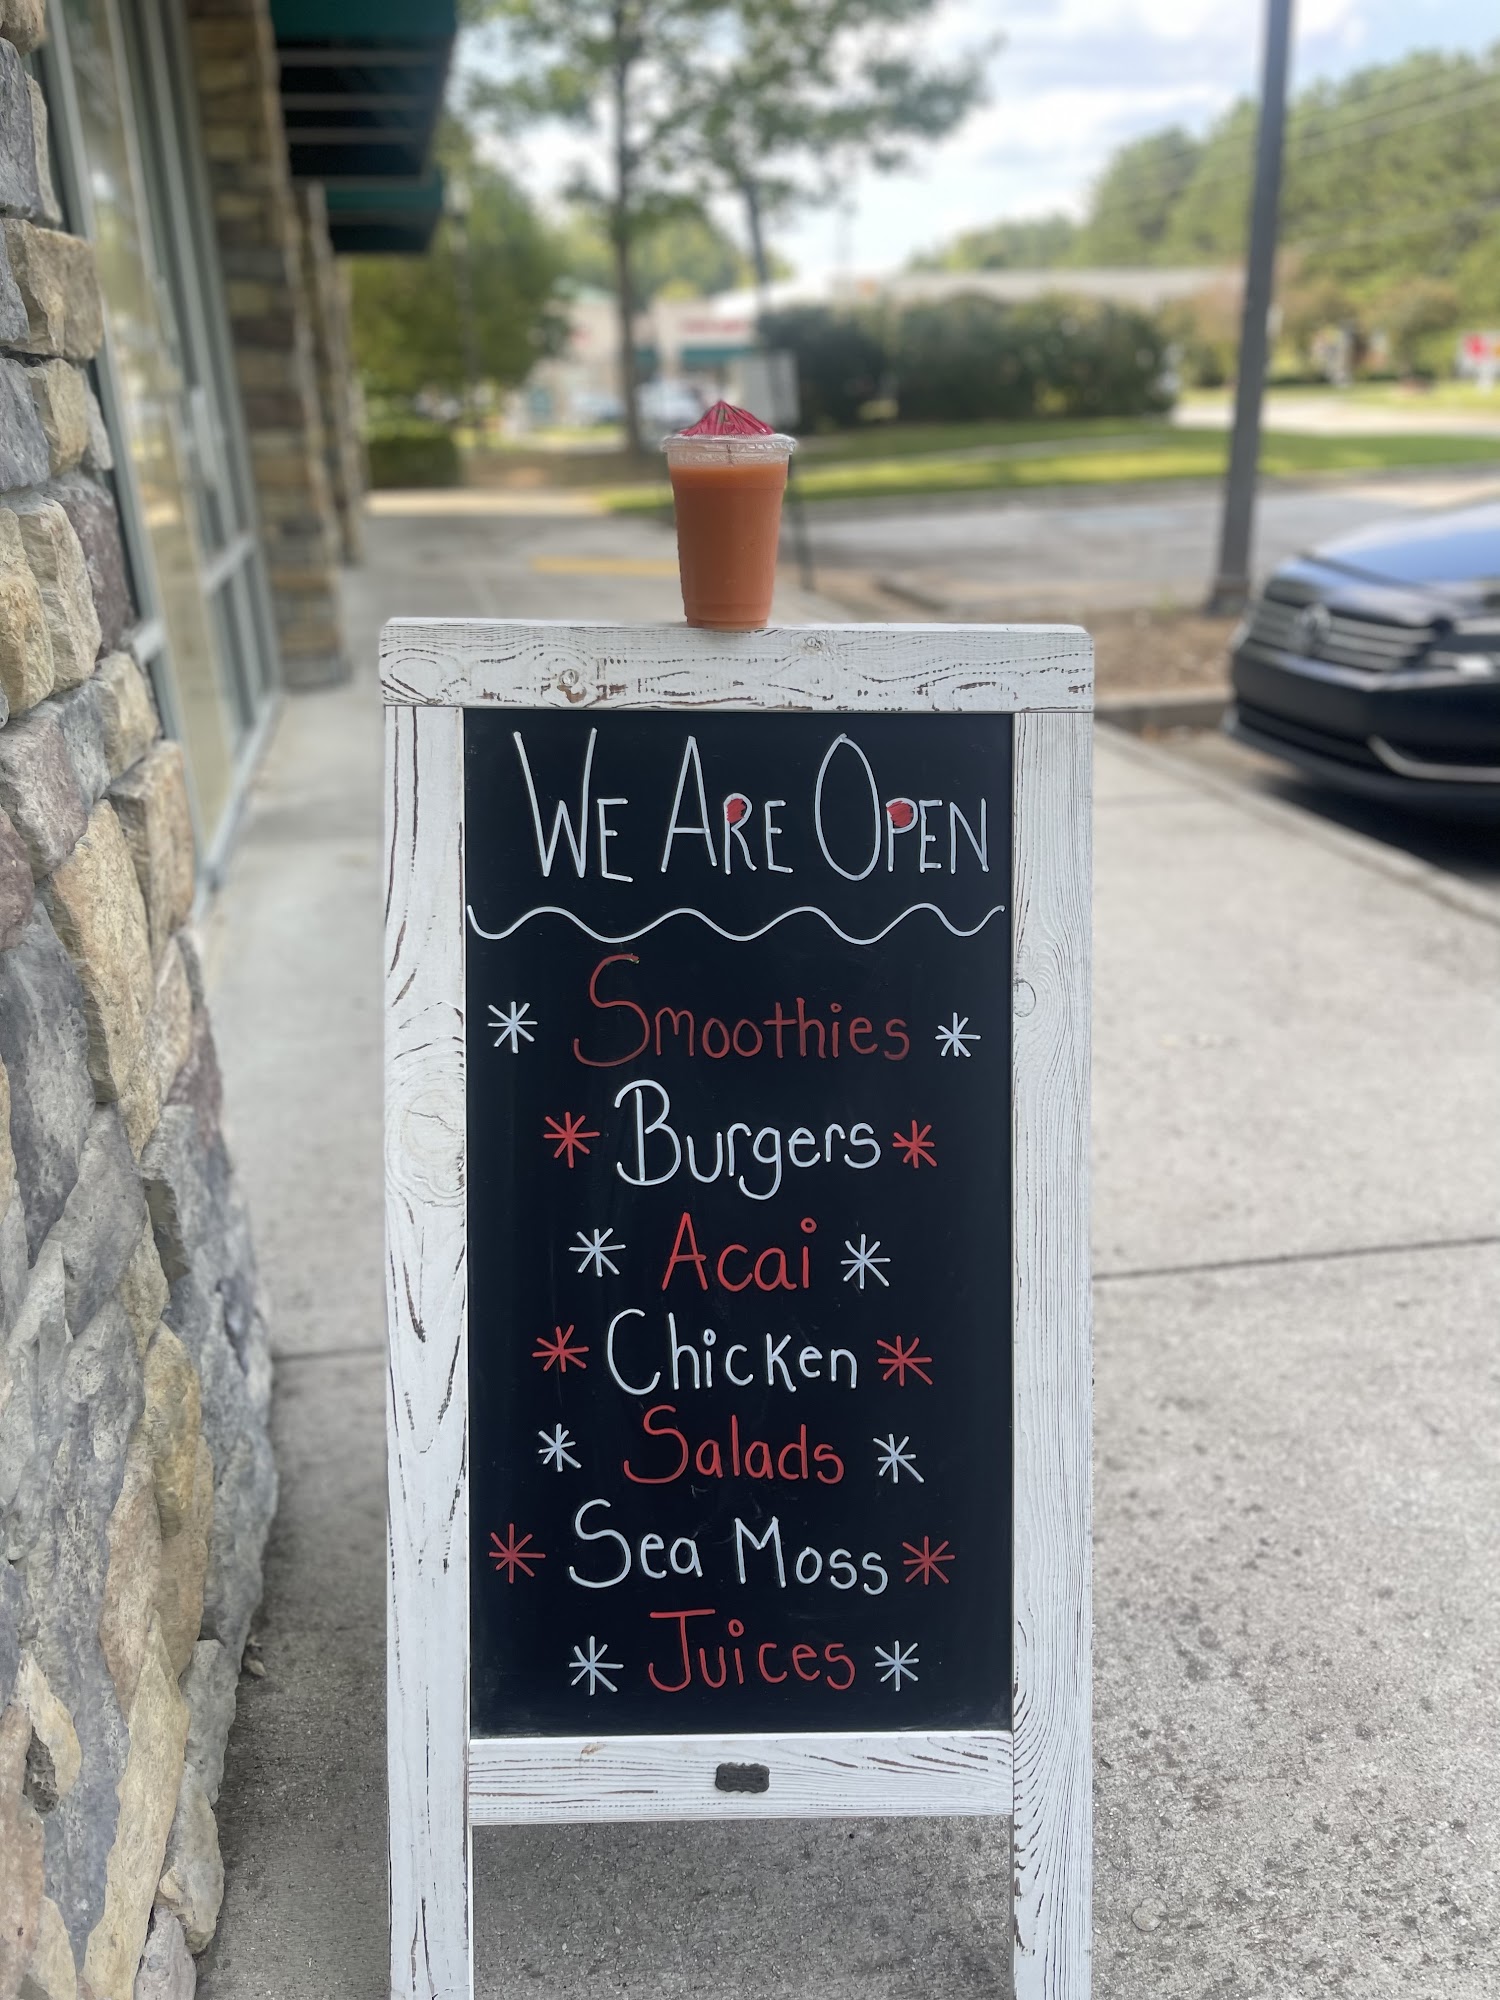 We Are Open
Smoothies
Burgers
Acai
Chicken
Salads
Sea Moss
Juices